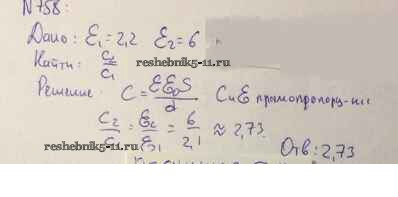 N758:
Дано: ε₁=2,2 ε₂=6
Найти: C₂/C₁
reshebnik5-11.ru
Решение: C = εε₀S/d C и ε прямопропорц-ные
C₂/C = ε₂/ε₁ = 6/2,1 ≈ 2,73
reshebnik5-11.ru
Отв: 2,73